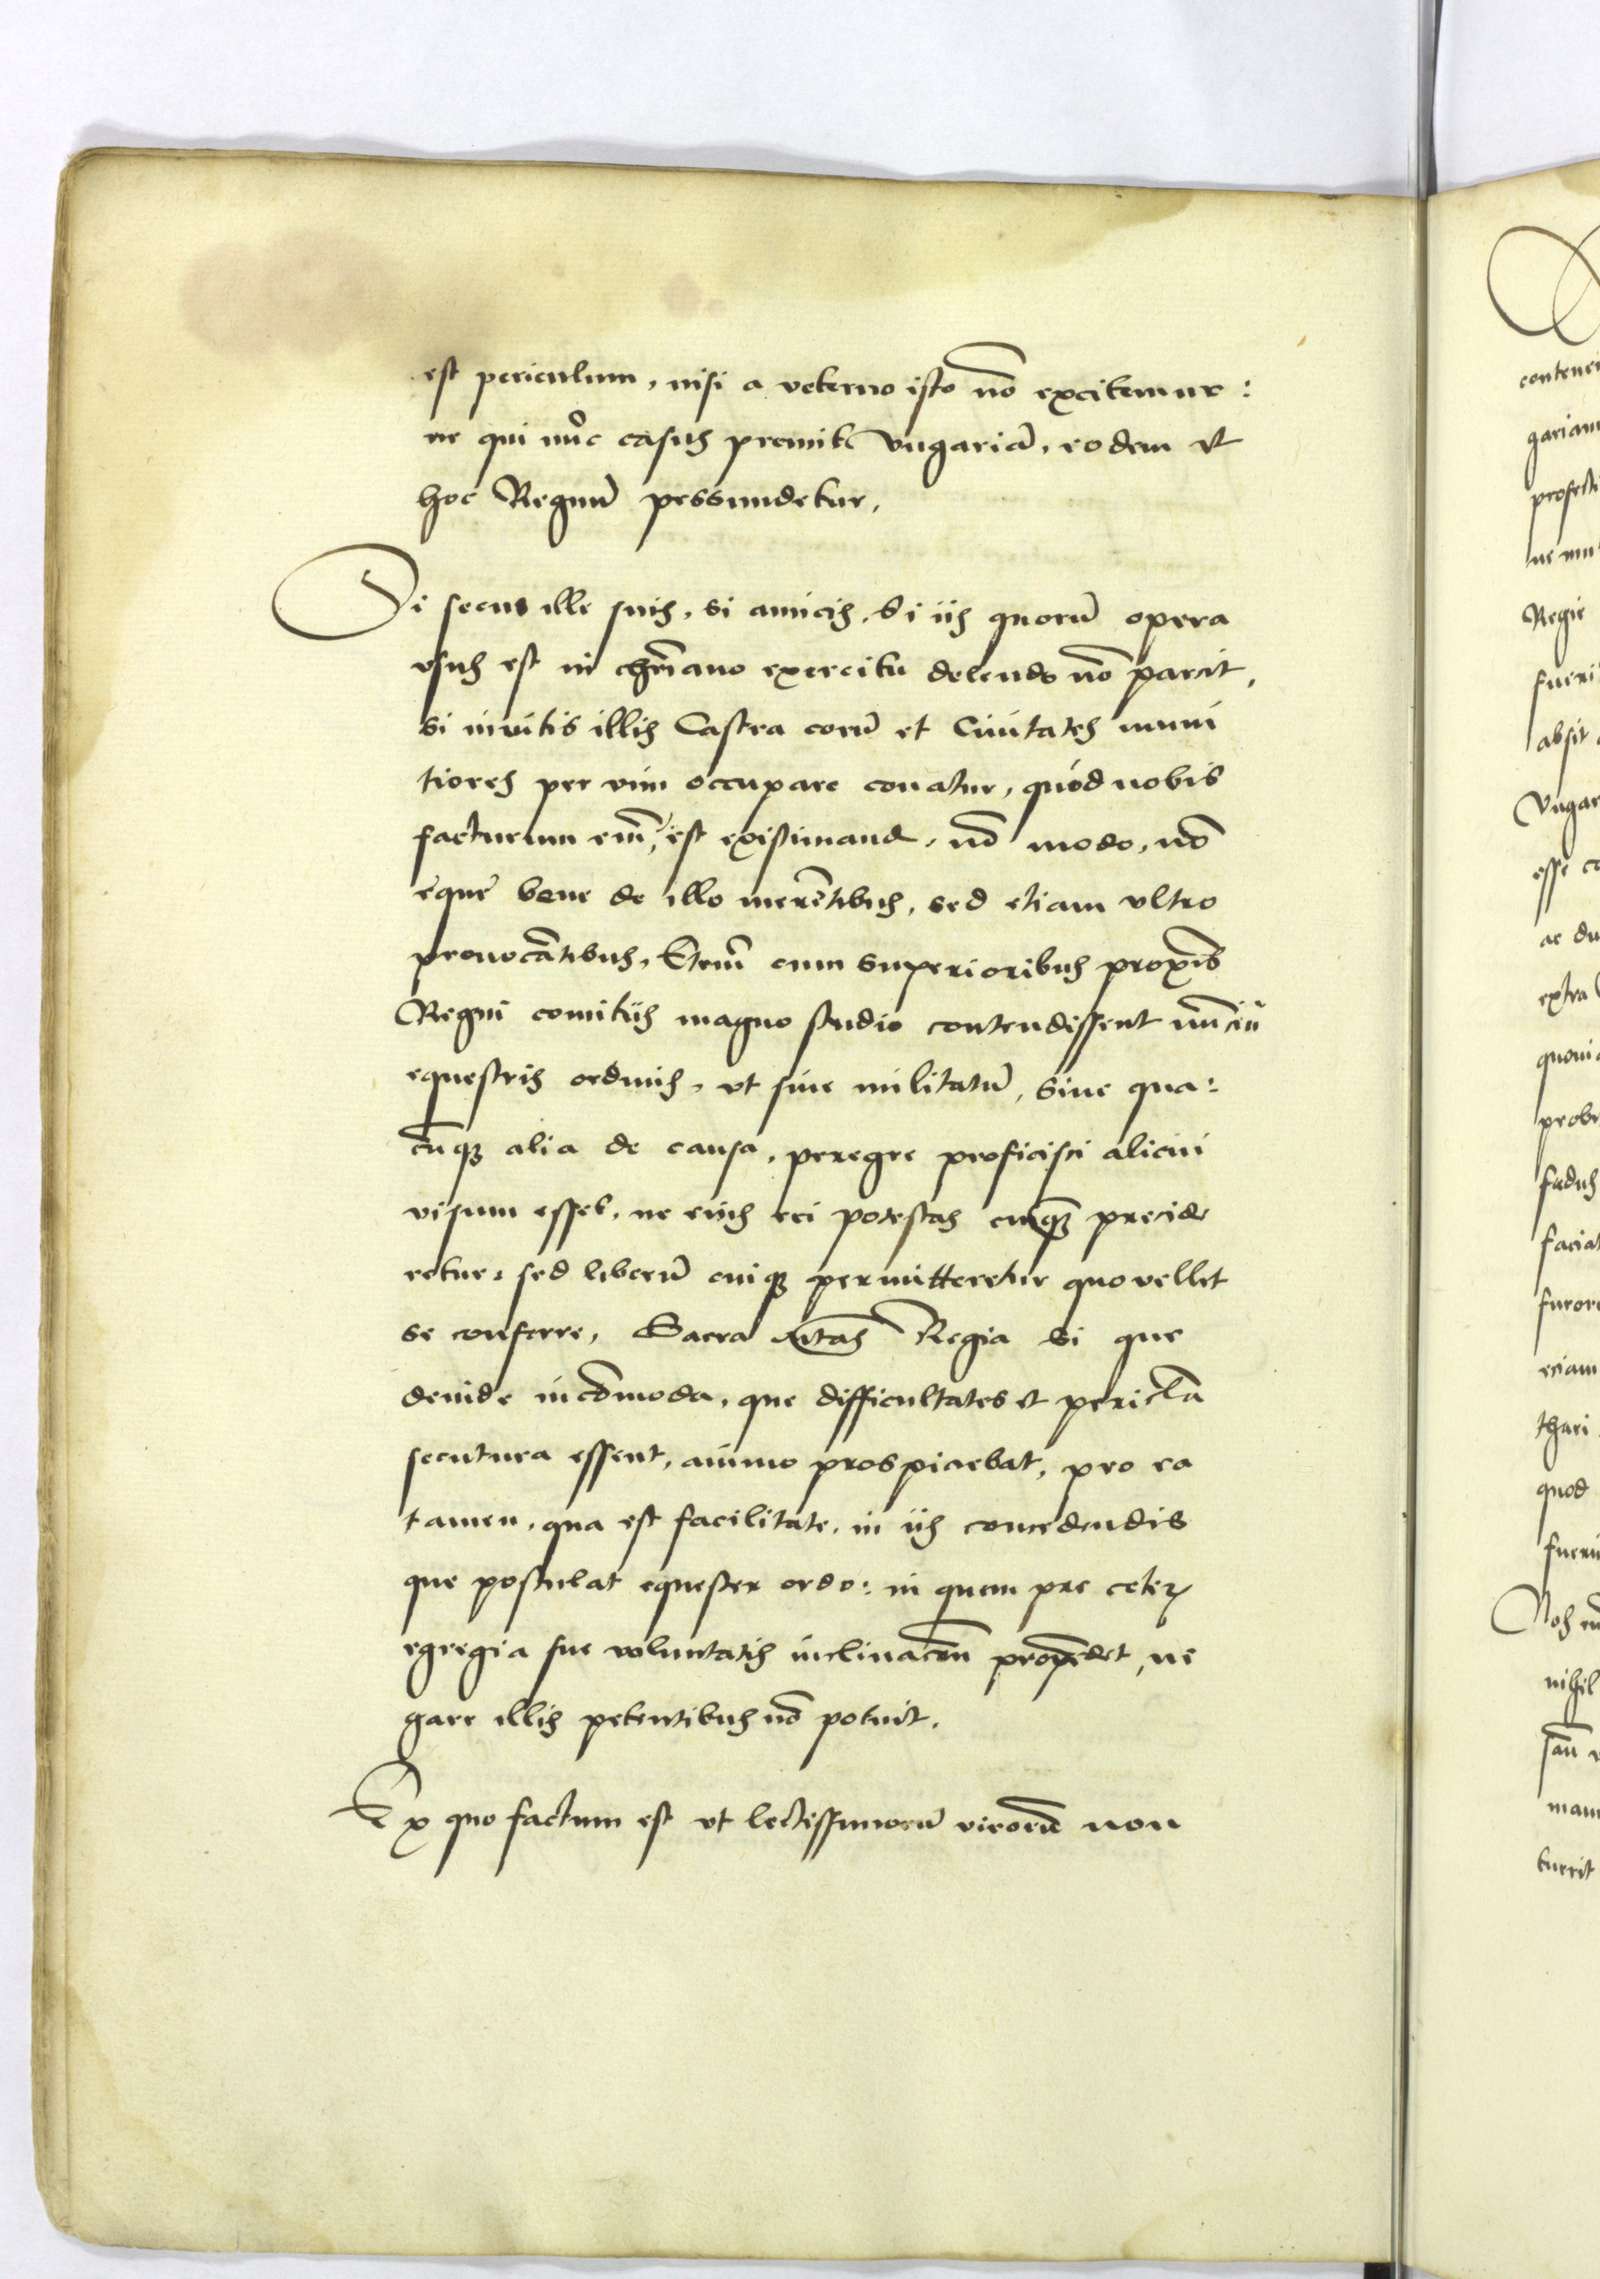 est periculum, nisi a veterno isto nō excitemur:
ne qui nūc casus premit Vngariā, eodem et
hoc Regnū pessundetur,
Si secus ille suis, si amicis, si iis quorū opera
vsus est in chrīano exercitu delendo nō parcit,
si inuitis illis Castra eorū et Ciuitates muni
tiores per vim occupare conatur, quod nobis
facturum eum, est existimand, nō modo, nō
eque bene de illo merētibus, sed etiam vltro
prouocātibus, Etenī cum superioribus proxīs
Regni comitiis magno studio contendissent nūcii
equestris ordinis, vt siue militatū, siue qua:
cūqꝫ alia de causa, peregre proficisci alicui
visum esset, ne eius rei potestas cuiqꝫ precide
retur, sed liberū cuiqꝫ permitteretur quo vellet
se conferre, Sacra Mtas Regia si que
deinde incōmoda, que difficultates et pericla
secutura essent, animo prospiciebat, pro ea
tamen, qua est facilitate, in iis concedendis
que postulat equester ordo: in quem pre ceteꝝ
egregia sue voluntatis inclinacōn propēdet, ne
gare illis petentibus nō potuit,
Ex quo factum est vt lectissimorū virorū non
conteneri
gariam
profecti
ne mu
Regie
fueri
absit
Vngar
esse co
ac du
extra
quoni
probr
fudus
faciat
furore
eciam
thari
quod
fueri
Nos
nihil
sau
mam
tuerit